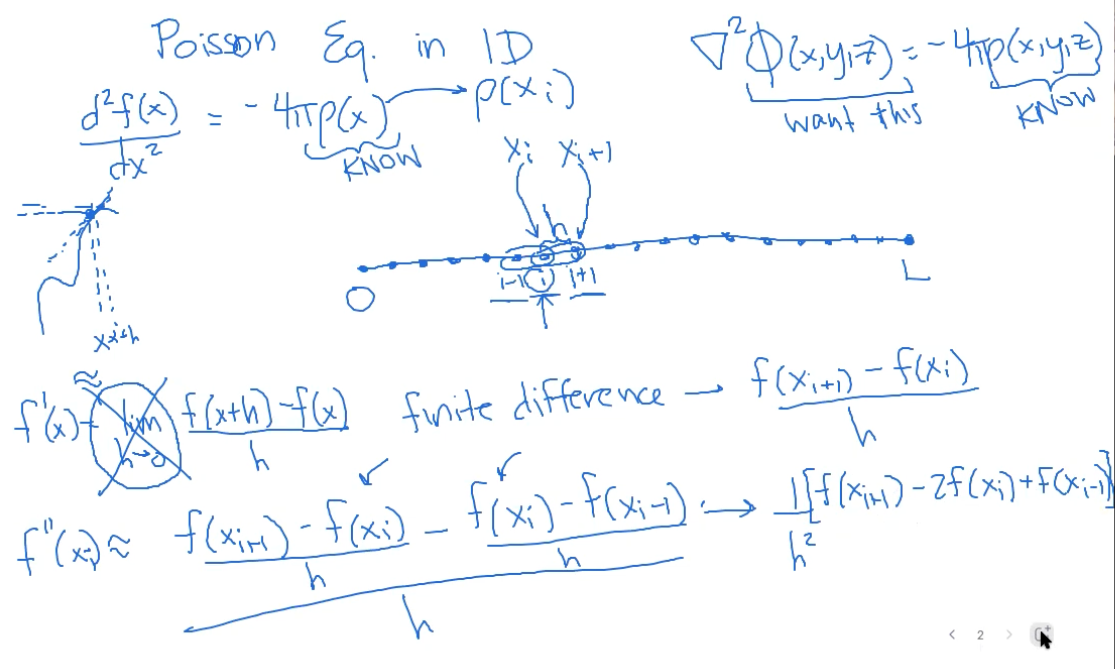 Poisson Eq. in 1D
∇²Φ(x,y,z) = -4πρ(x,y,z)
want this
KNOW
d²f(x)/dx² = -4πρ(x) → ρ(xᵢ)
KNOW
xᵢ xᵢ+1
h
i-1 i i+1
0 L
x x+h
f'(x) = ≈ lim h→0 (f(x+h) - f(x))/h finite difference → (f(xᵢ₊₁) - f(xᵢ))/h
f''(xᵢ) ≈ ((f(xᵢ₊₁) - f(xᵢ))/h - (f(xᵢ) - f(xᵢ₋₁))/h)/h → 1/h² [f(xᵢ₊₁) - 2f(xᵢ) + f(xᵢ₋₁)]
< 2 >